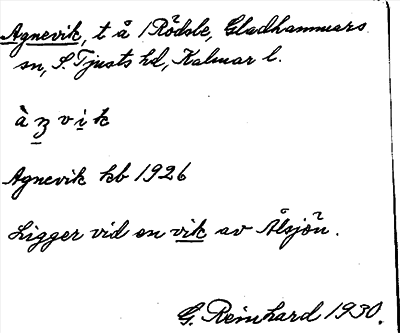 Agnevik, t å Rödsle, Gladhammars
sn, S. Tjusts hd, Kalmar l.
à n̲ v i̲ k
Agnevik kb 1926
Ligger vid en vik av Ålsjön.
G. Reinhard 1930.